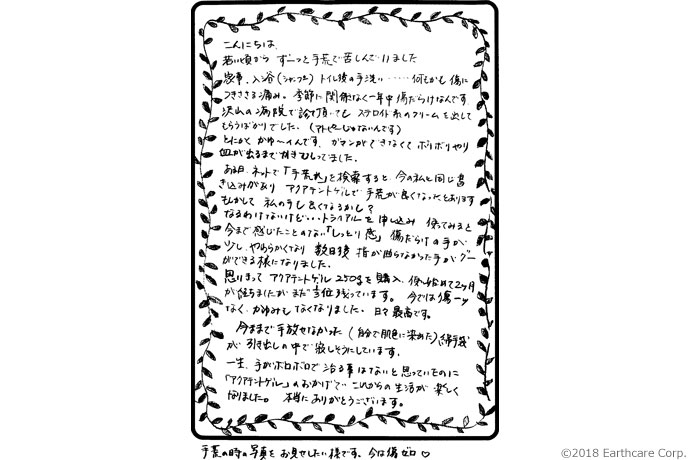 こんにちは、
若い頃から ずーっと手荒で苦しんでいました
家事、入浴(シャンプー) トイレ後の手洗い……何もかも傷に
つきささる痛み。季節に関係なく一年中傷だらけなんです
沢山の病院で診て頂いても ステロイド系のクリームを出して
もらうばかりでした。(アトピーじゃないんです)
とにかく かゆ〜いんです、ガマンができなくて ボリボリやり
血が出るまでかきむしってました。
ある日、ネットで「手荒れ」を検索すると、今の私と同じ書
き込みがあり アクアテントゲルで手荒が良くなったとあります
もしかして 私の手も良くなるかも?
なるわけないけど・・・トライアルを申し込み 使ってみると
今まで感じたことのない「しっとり感」 傷だらけの手が
少し、やわらかくなり 数日後 指が曲らなかった手がグー
ができる様になりました。
思いきって アクアテントゲル 250gを購入、使い始めて2ヶ月
が経ちましたが まだ 残っています。今では傷一ツ
なく、かゆみもなくなりました。日々最高です。
今まで手放せなかった(自分で肌色に染めた)綿手袋
が 引き出しの中で寂しそうにしています。
一生、手がボロボロで治る事はないと思っていたのに
「アクアテントゲル」のおかげで これからの生活が楽しく
なりました。 本当にありがとうございます。
手荒の時の写真を お見せしたい様です、今は傷ゼロ♡
©2018 Earthcare Corp.